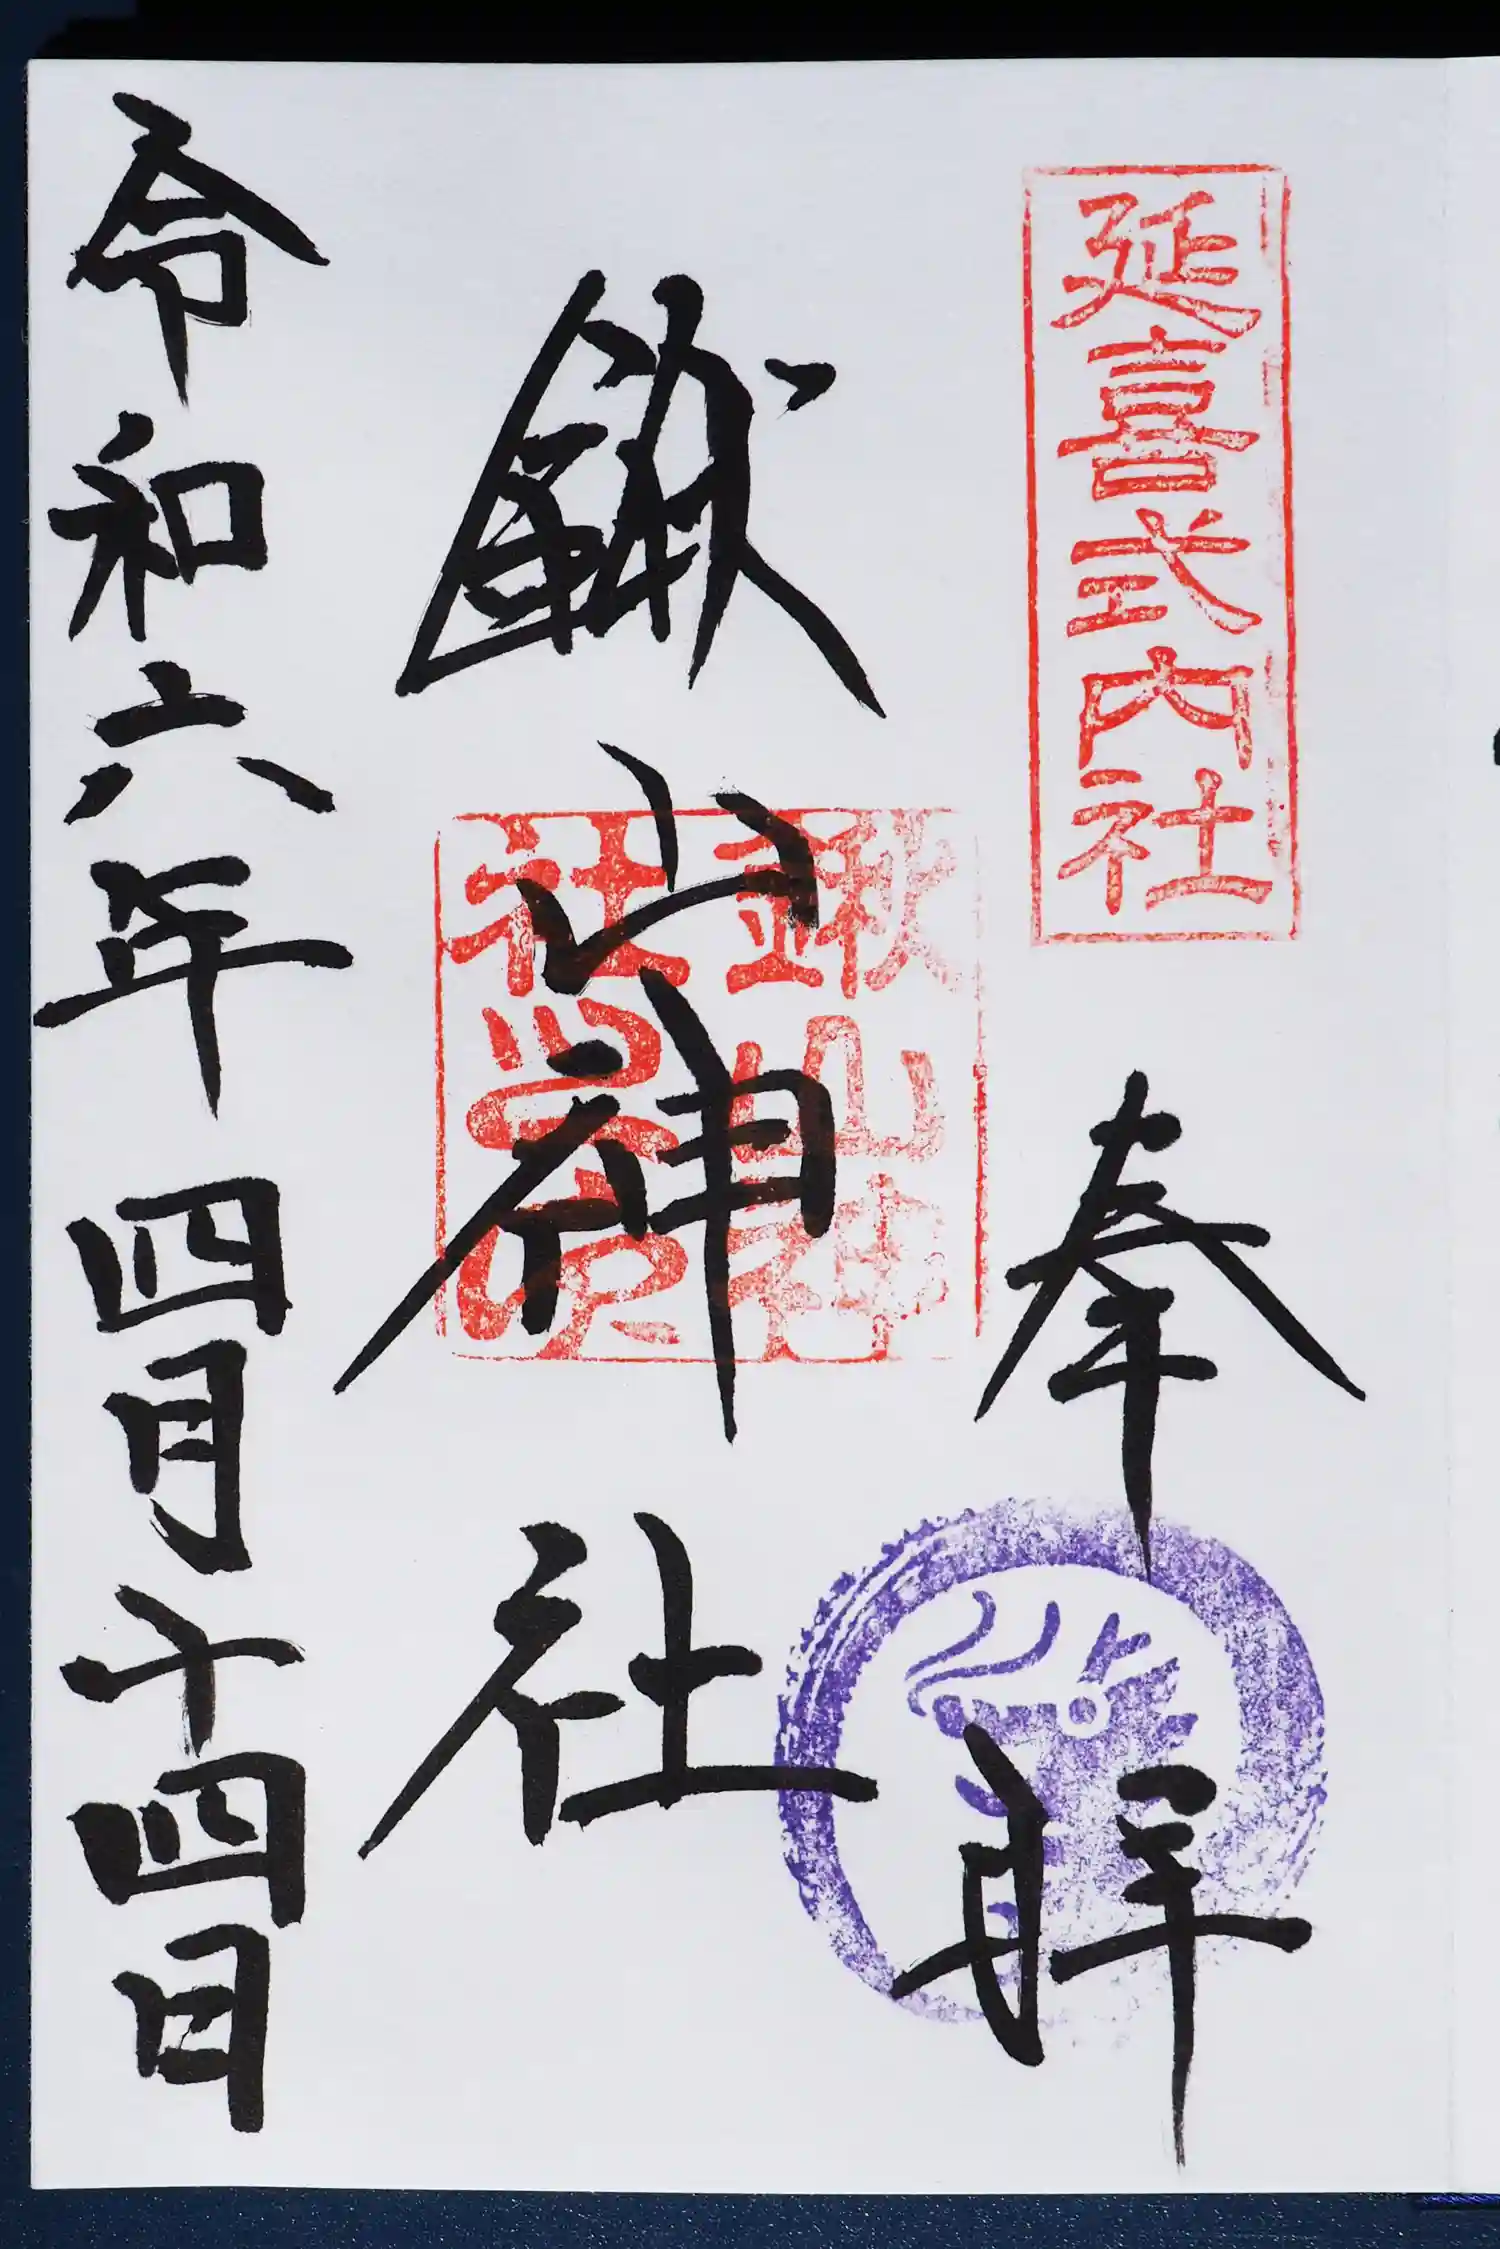 延喜式内社
奉拝
鍬山神社
鍬山神
社之印
令和六年四月十四日